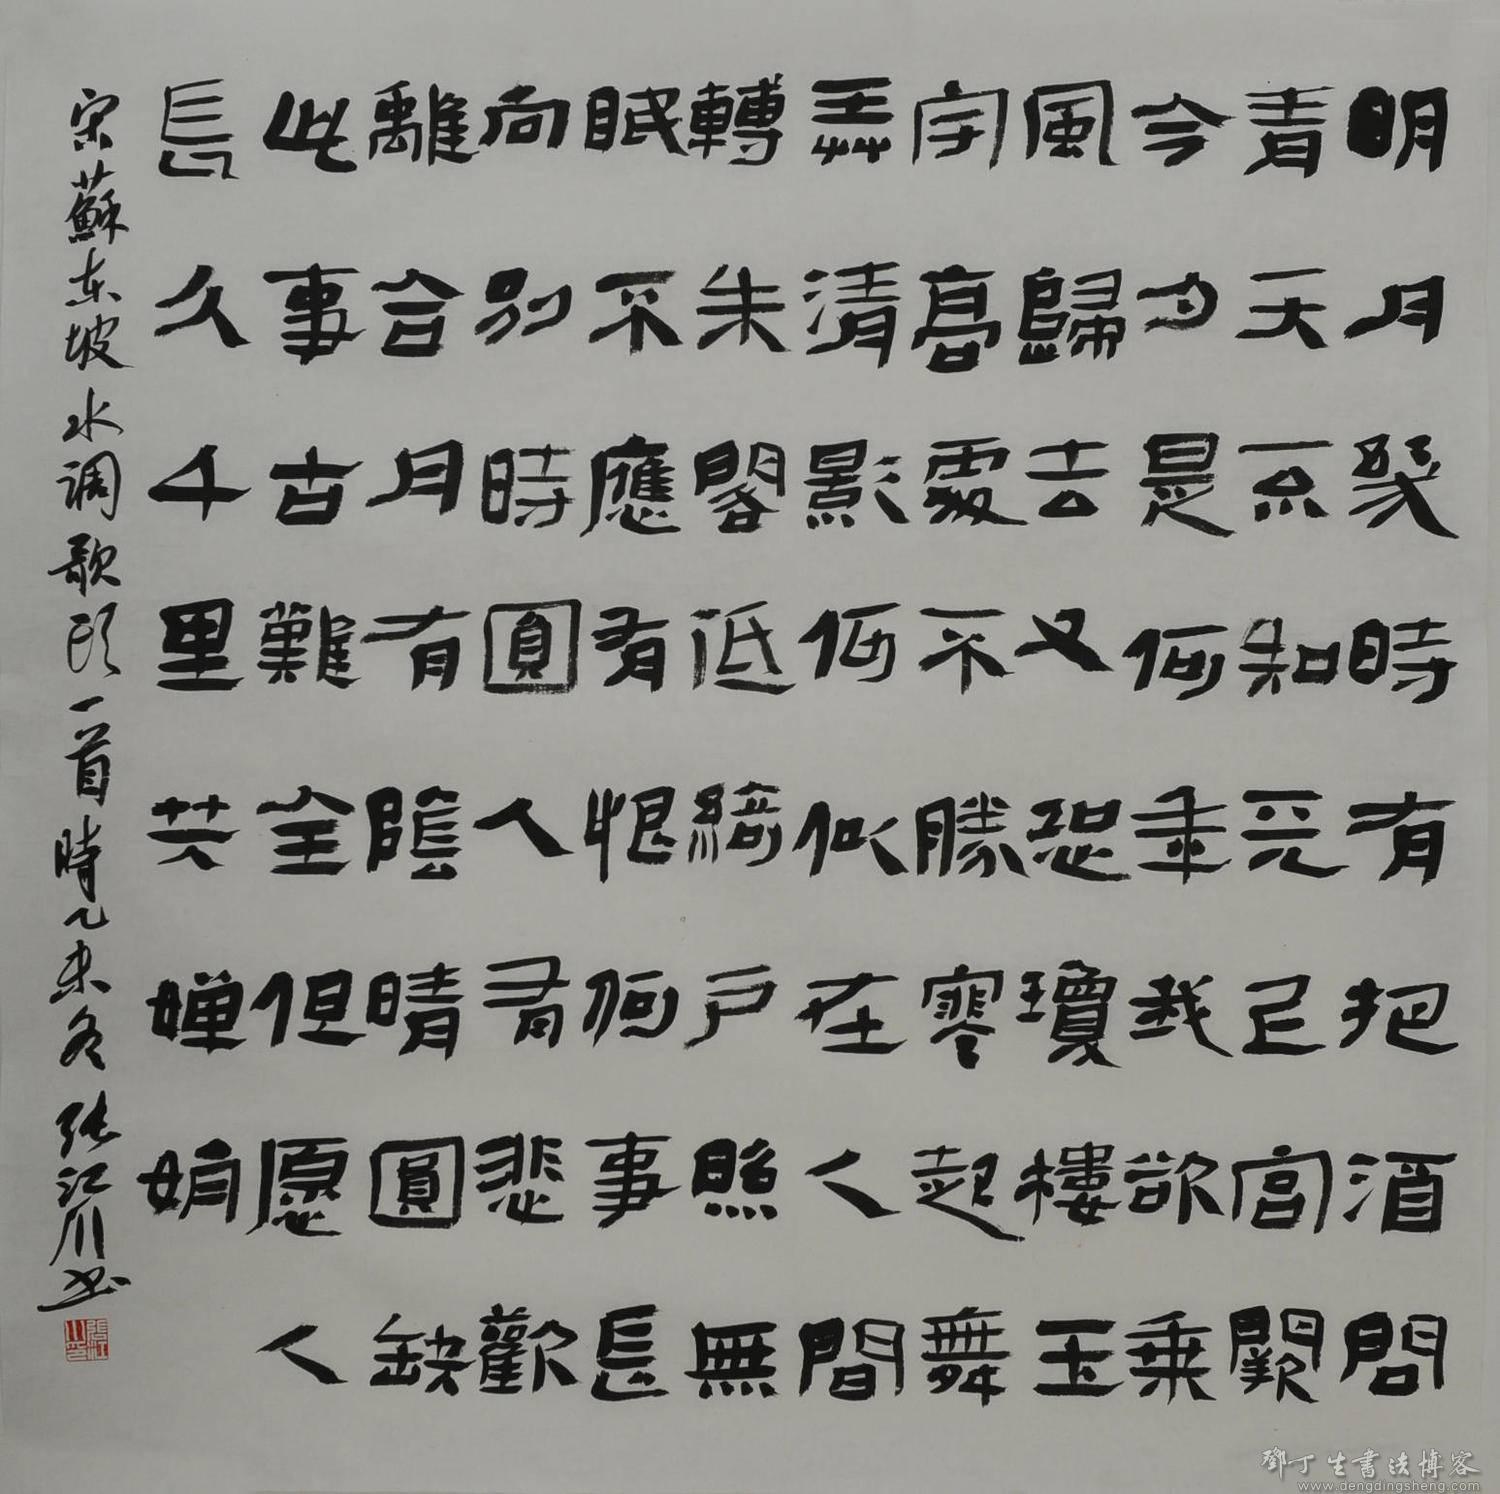 明月幾時有把酒問
青天不知天上宮闕
今夕是何年我欲乘
風歸去又恐瓊樓玉
宇高處不勝寒起舞
弄清影何似在人間
轉朱閣低綺戶照無
眠不應有恨何事長
向別時圓人有悲歡
離合月有陰晴圓缺
此事古難全但愿人
長久千里共嬋娟
宋蘇东坡水调歌头一首時乙未冬张江川书
張江川印
鄧丁生書法博客
www.dengdingsheng.com